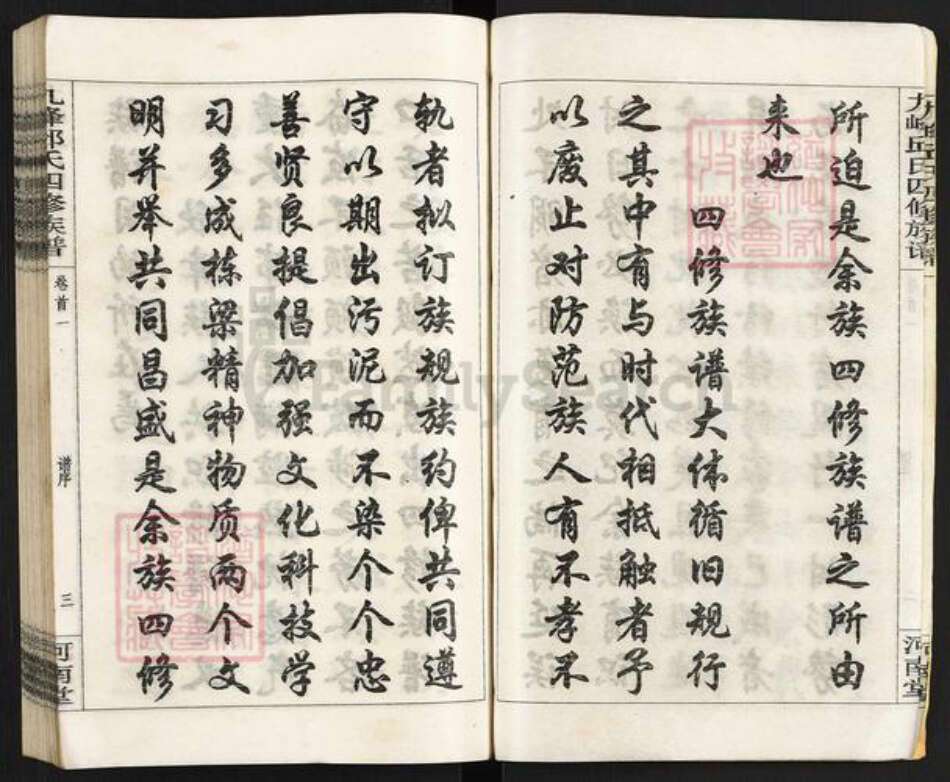 九峰邱氏四修族谱
河南堂
所迫是余族四修族谱之所由
来也
四修族谱大体循旧规行
之其中有与时代相抵触者予
以废止对防范族人有不孝不
轨者拟订族规族约俾共同遵
守以期出污泥而不染个个忠
善贤良提倡加强文化科技学
习多成栋梁精神物质两个文
明并举共同昌盛是余族四修
九峰邱氏四修族谱
卷首一
谱序
三
河南堂
FamilySearch